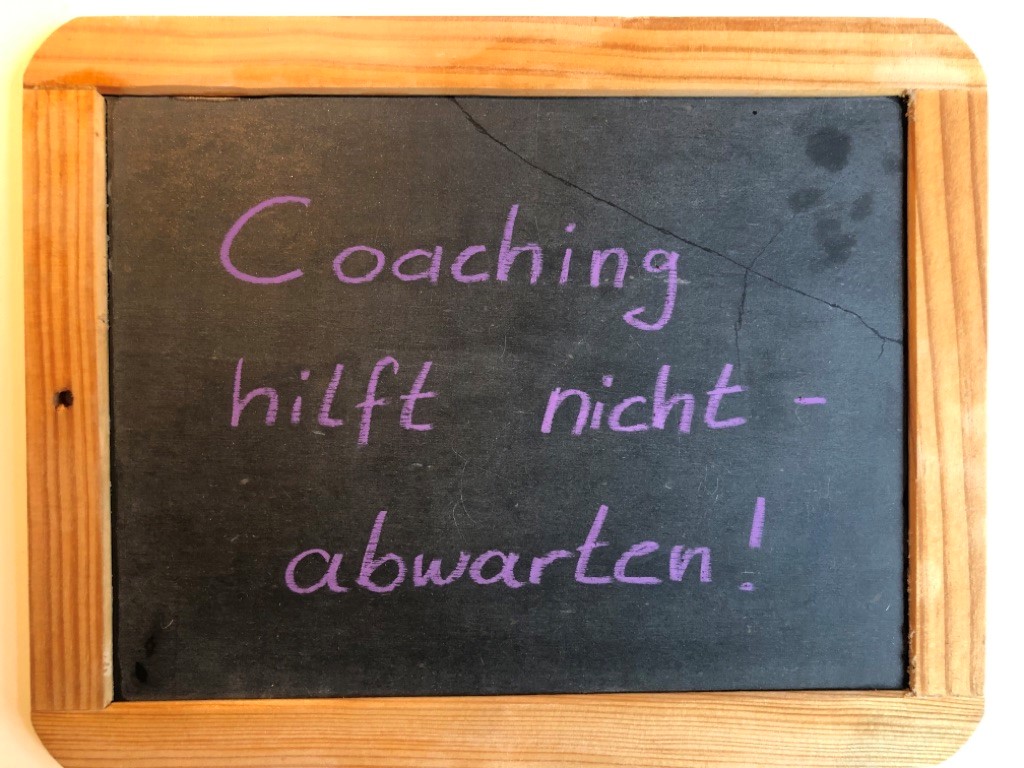 Coaching
hilft nicht -
abwarten!